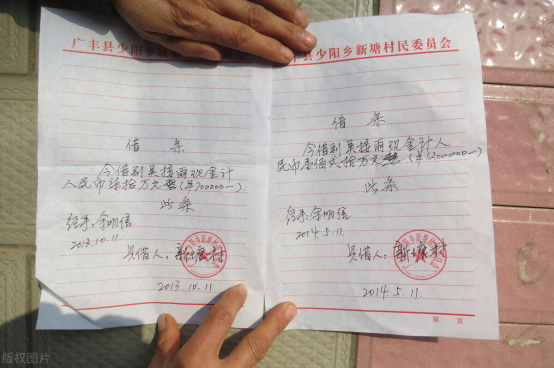 广丰县少阳乡新
借条
今借到吴接雨现金计
人民币柒拾万元整(¥700000一)
此条
经手:余明信
2013.10.11
具借人:新塘村
2013.10.11
丰县少阳乡新塘村民委员会
借条
今借到吴接雨现金计人
民币壹佰贰拾万元整(¥1200000一)
此条
经手:余明信
2014.5.11.
具借人:新塘村
2014.5.11.
第 页
版权图片